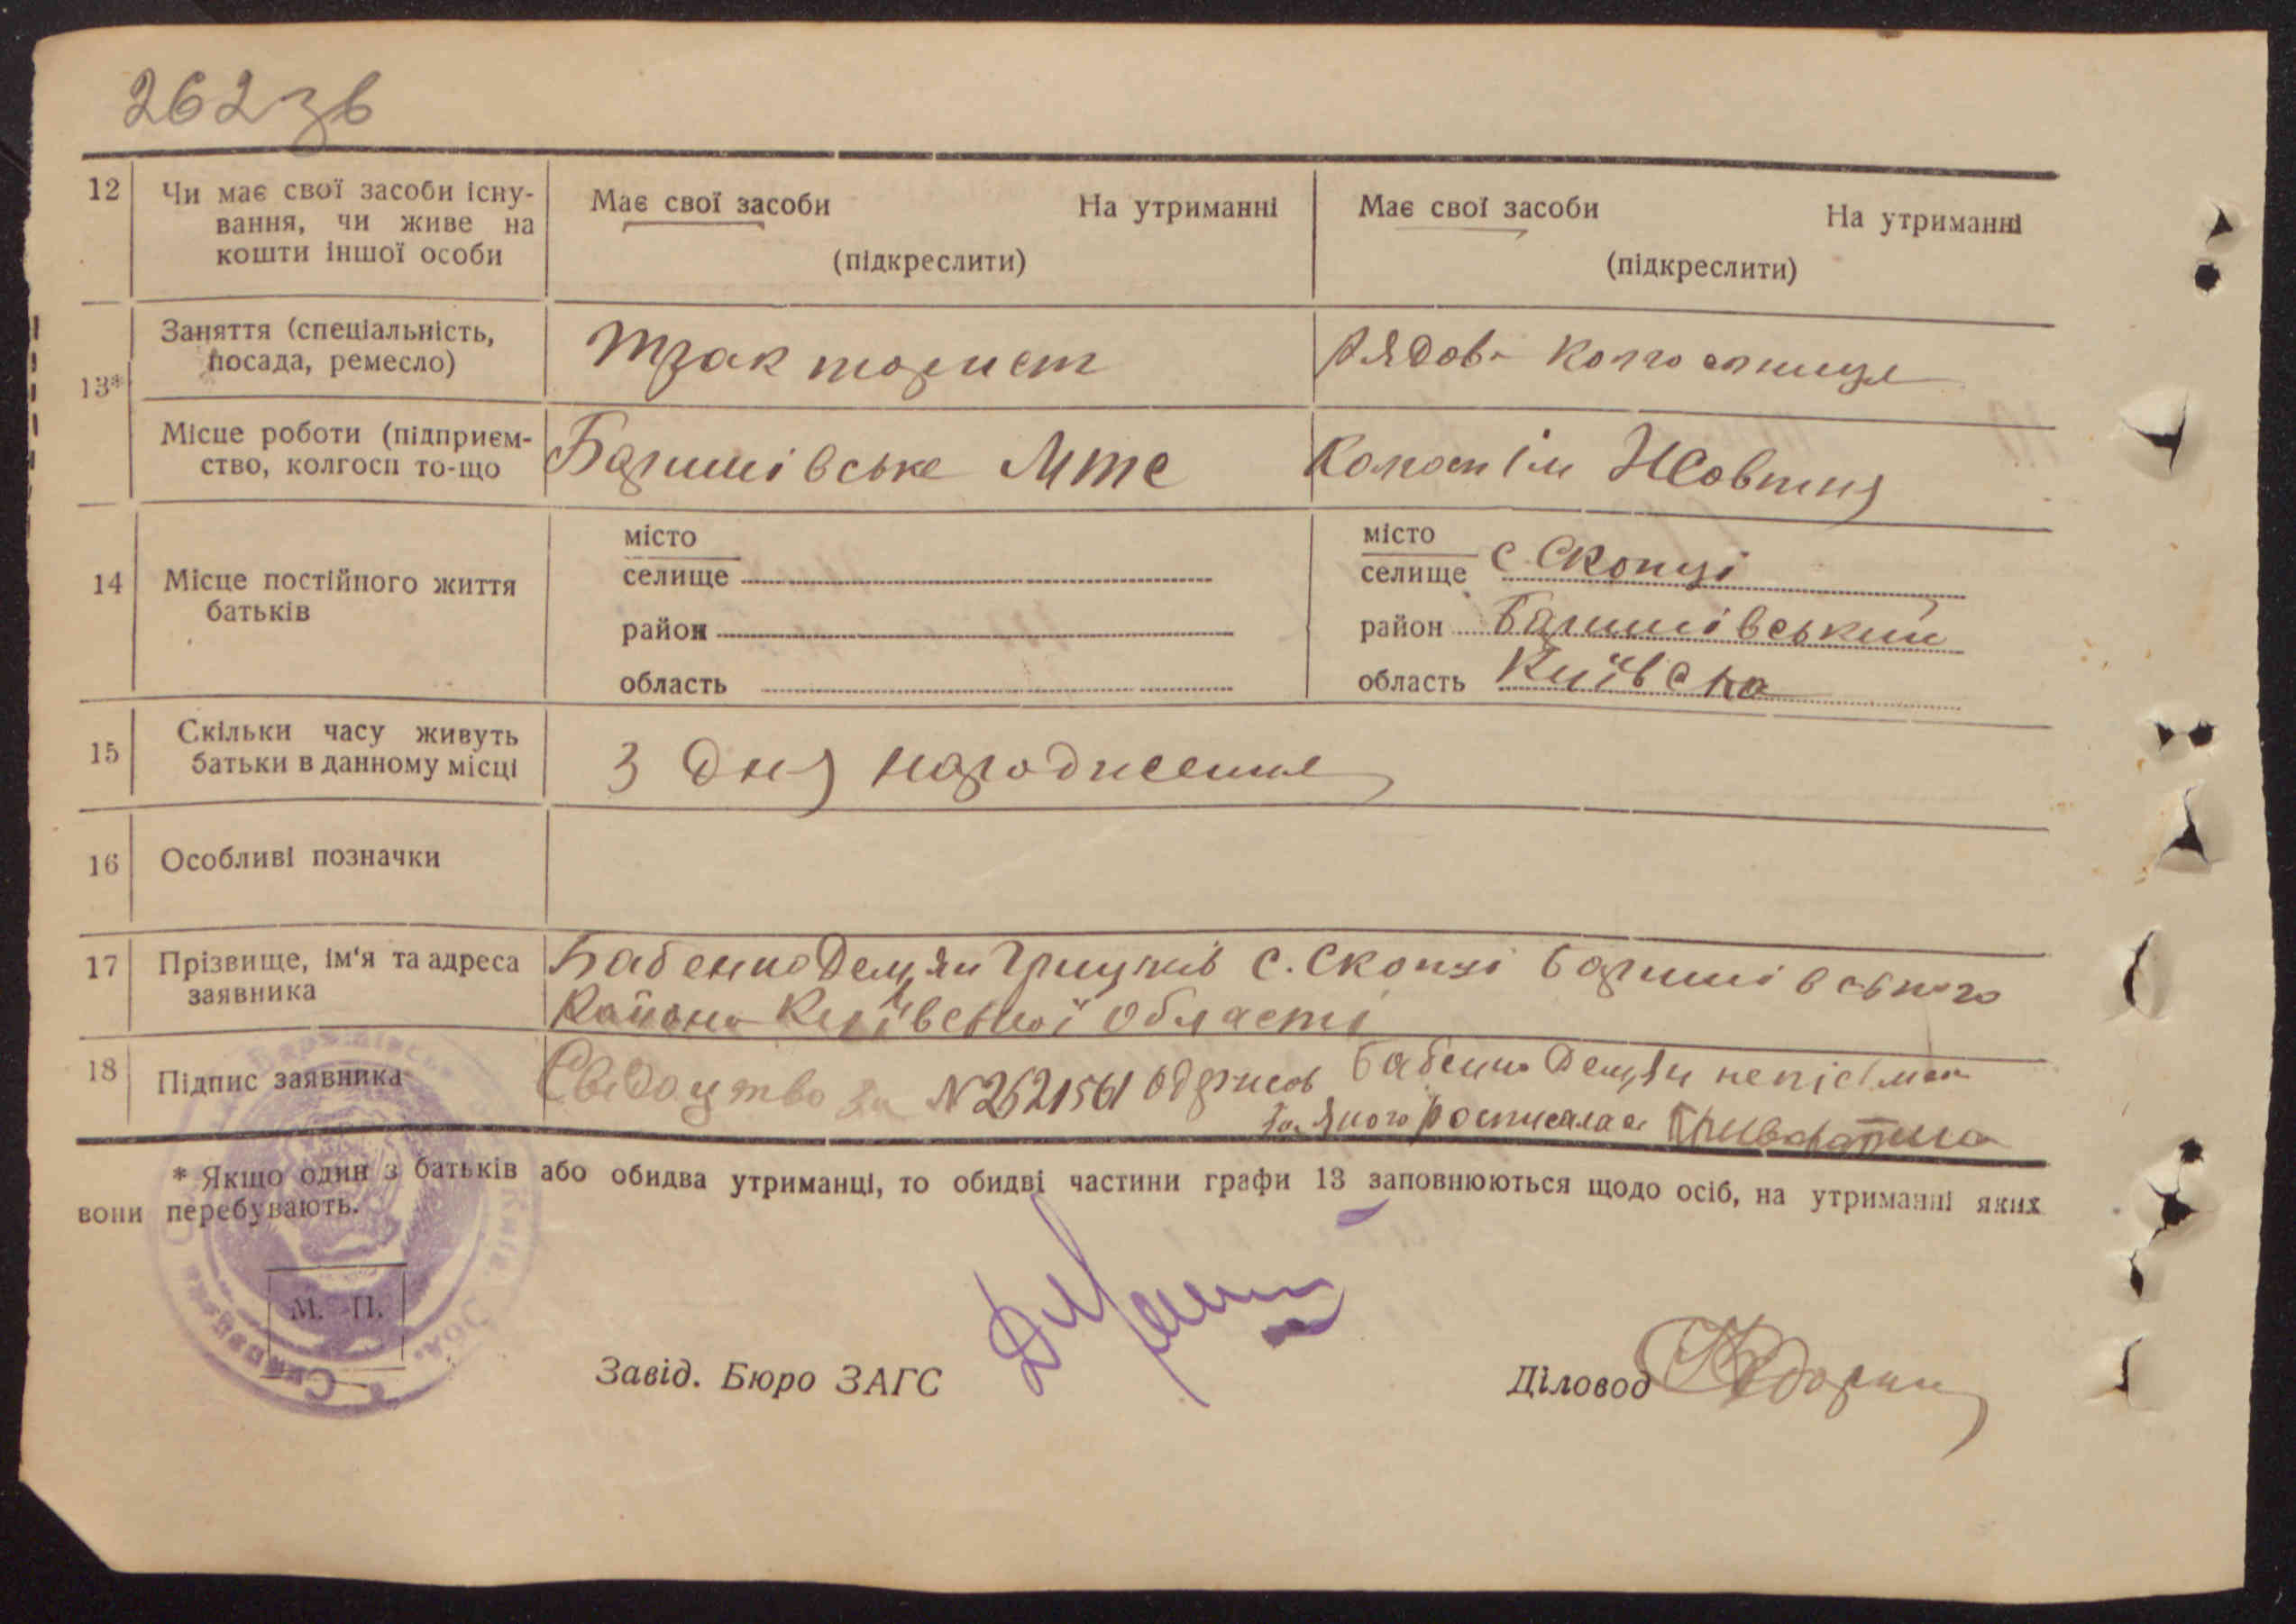 262зв
12 Чи має свої засоби існу-
вання, чи живе на
кошти іншої особи
Має свої засоби На утриманні
(підкреслити)
Має свої засоби На утриманні
(підкреслити)
13*
Заняття (спеціальність,
посада, ремесло)
Тракторист
рядов. колгоспниця
Місце роботи (підприєм-
ство, колгосп то-що
Баришівське Мтс
Колгосп Ім Жовтня
14 Місце постійного життя
батьків
місто
селище
район
область
місто
селище с Скопці
район Баришівський
область Київська
15 Скільки часу живуть
батьки в данному місці
З Дня народження
16 Особливі позначки
17 Прізвище, ім'я та адреса
заявника
Бабенко Демян с. Скопці Баришівського
Района Київської Області
18 Підпис заявника
Свідоцтво за N2621561 одержав Бабенко Демян
За якого росписалас
* Якщо один з батьків або обидва утриманці, то обидві частини графи 13 заповнюються щодо осіб, на утриманні яких
вони перебувають.
М. П.
Завід. Бюро ЗАГС
Діловод